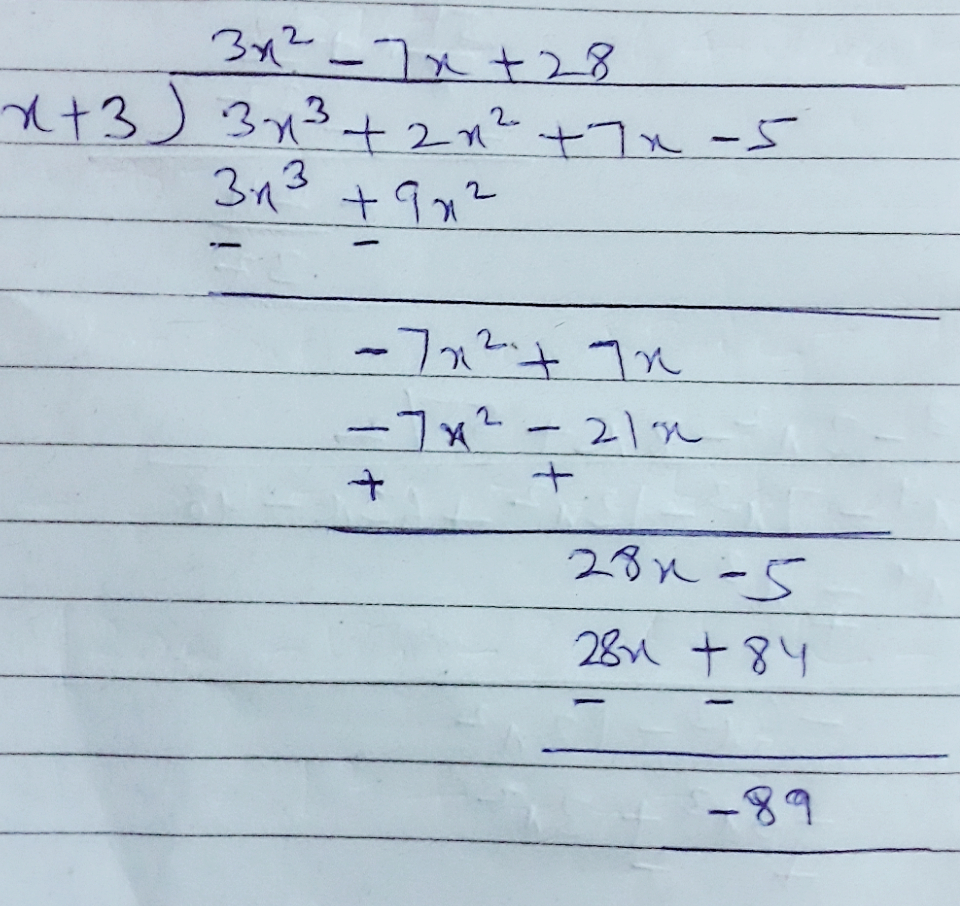 3x² - 7x + 28
x+3) 3x³ + 2x² + 7x - 5
3x³ + 9x²
- -
-7x² + 7x
-7x² - 21x
+ +
28x - 5
28x + 84
- -
-89